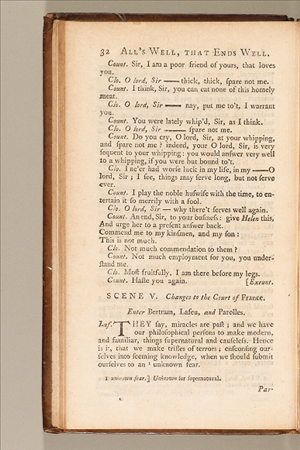 32 ALL'S WELL, THAT ENDS WELL.
Count. Sir, I am a poor friend of yours, that loves
you.
Clo. O lord, Sir —— thick, thick, spare not me.
Count. I think, Sir, you can eat none of this homely
meat.
Clo. O lord, Sir —— nay, put me to't, I warrant
you.
Count. You were lately whip'd, Sir, as I think.
Clo. O lord, Sir —— spare not me.
Count. Do you cry, O lord, Sir, at your whipping,
and spare not me? indeed, your O lord, Sir, is very
sequent to your whipping: you would answer very well
to a whipping, if you were but bound to't.
Clo. I ne'er had worse luck in my life, in my ——O
lord, Sir; I see, things may serve long, but not serve
ever.
Count. I play the noble huswife with the time, to en-
tertain it so merrily with a fool.
Clo. O lord, Sir — why there't serves well again.
Count. An end, Sir, to your business: give Helen this,
And urge her to a present answer back.
Commend me to my kinsmen, and my son:
This is not much.
Clo. Not much commendation to them?
Count. Not much employment for you, you under-
stand me.
Clo. Most fruitfully, I am there before my legs.
Count. Haste you again. [Exeunt.
SCENE V. Changes to the Court of France.
Enter Bertram, Lafeu, and Parolles.
Laf. THEY say, miracles are past; and we have
our philosophical persons to make modern,
and familiar, things supernatural and causeless. Hence
is it, that we make trifles of terrors; ensconsing our-
selves into seeming knowledge, when we should submit
ourselves to an ¹ unknown fear.
1 unknown fear.] Unknown for supernatural.
Par-